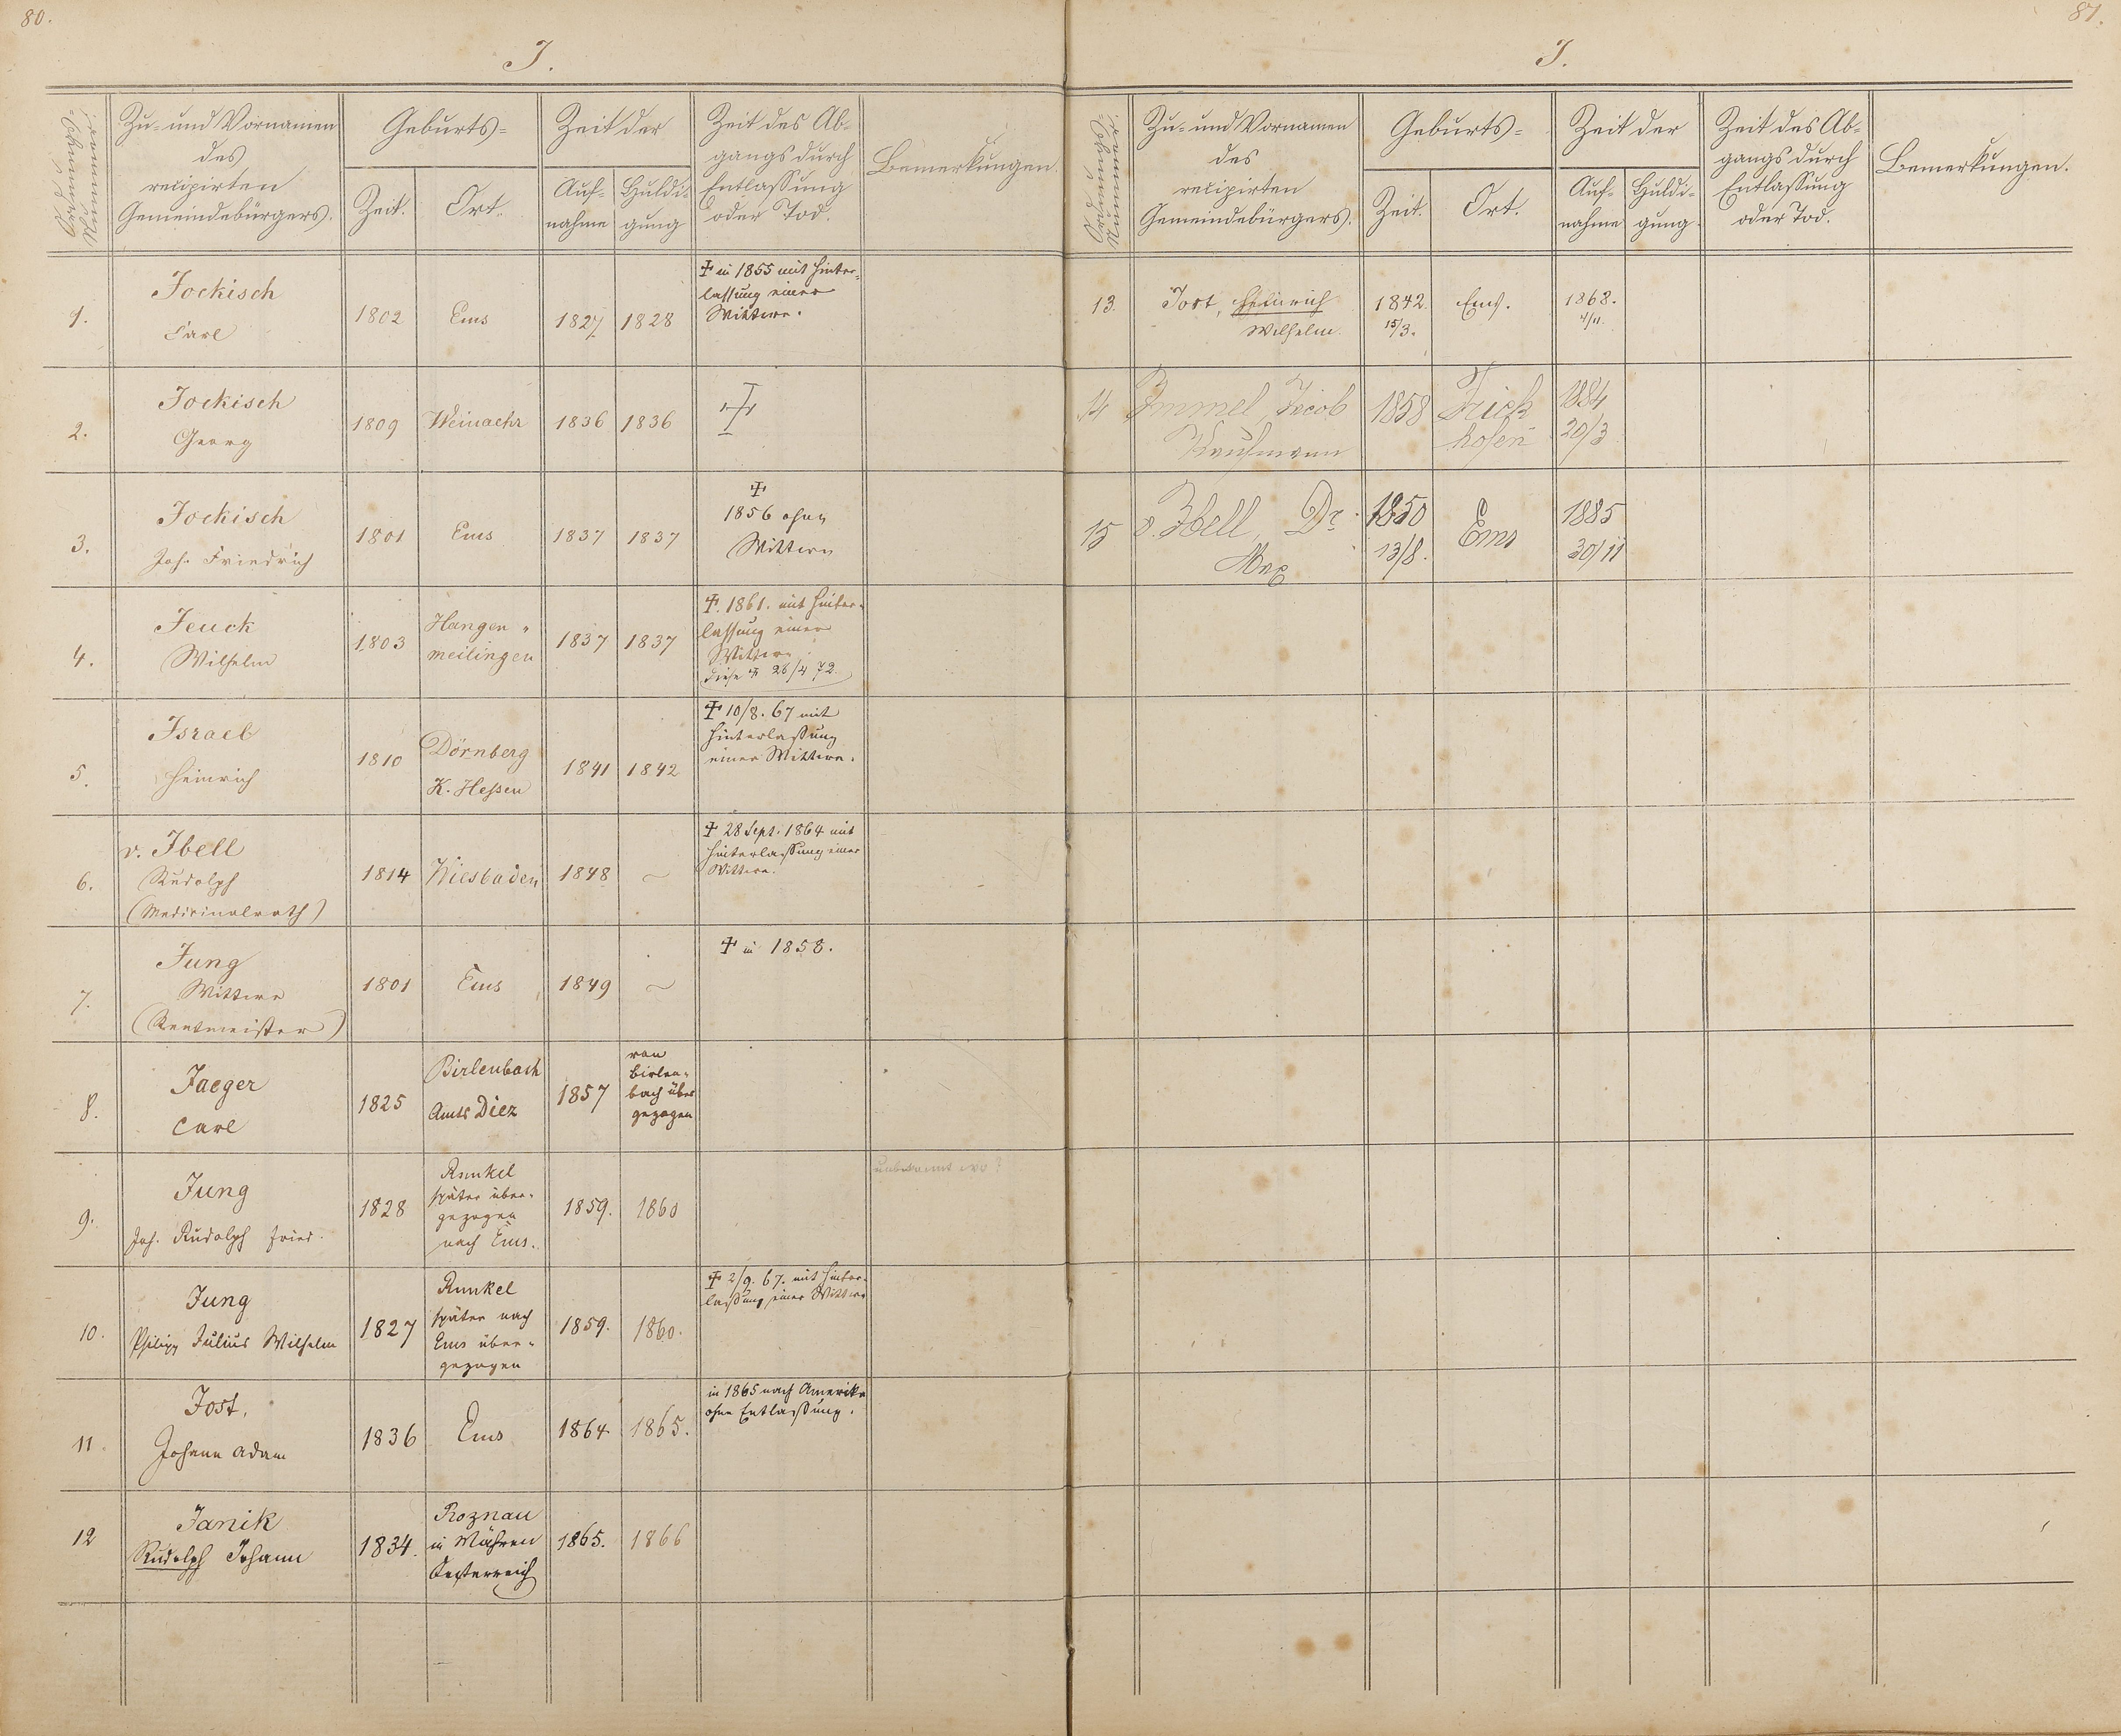 80.
J.
Ordnungs=
Nummer.
Zu= und Vornamen
des
recipirten
Gemeindebürgers.
Geburts=
Zeit.
Ort.
Zeit der
Auf=
nahme
Huldi=
gung
Zeit des Ab=
gangs durch
Entlassung
oder Tod.
Bemerkungen.
1.
Jockisch
Carl
1802
Ems
1827
1828
† in 1855 mit Hinter=
lassung einer
Wittwe.
2.
Jockisch
Georg
1809
Weinaehr
1836
1836
†
3.
Jockisch
Joh. Friedrich
1801
Ems
1837
1837
†
1856 ohne
Wittwe
4.
Jeuck
Wilhelm
1803
Hangen=
meilingen
1837
1837
†. 1861. mit Hinter=
lassung einer
Wittwe
diese † 26/4 72.
5.
Israel
Heinrich
1810
Dörnberg
K. Hessen
1841
1842
† 10/8. 67 mit
Hinterlaßung
einer Wittwe.
6.
v. Ibell
Rudolph
(Medicinalrath)
1814
Wiesbaden
1848
~
† 28 Sept. 1864 mit
Hinterlaßung einer
Wittwe.
7.
Jung
Wittwe
(Rentmeister)
1801
Ems
1849
~
† in 1858.
8.
Jaeger
Carl
1825
Birlenbach
Amts Diez
1857
von
Birlen=
bach über
gezogen
9.
Jung
Joh. Rudolph Fried.
1828
Runkel
später über=
gezogen
nach Ems.
1859.
1860
unbekannt wo?
10.
Jung
Philipp Julius Wilhelm
1827
Runkel
später nach
Ems über=
gezogen
1859.
1860.
† 2/9. 67. mit Hinter=
laßung einer Wittwe
11.
Jost,
Johann Adam
1836
Ems
1864
1865.
in 1865 nach Amerika
ohne Entlaßung.
12
Janik
Rudolph Johann
1834.
Roznau
in Mähren
Oesterreich
1865.
1866
81.
J.
Ordnungs=
Nummer.
Zu= und Vornamen
des
recipirten
Gemeindebürgers.
Geburts=
Zeit.
Ort.
Zeit der
Auf=
nahme
Huldi=
gung.
Zeit des Ab=
gangs durch
Entlassung
oder Tod.
Bemerkungen.
13.
Jost, Heinrich
Wilhelm.
1842.
15/3.
Ems.
1868.
4/11.
14
Immel, Jacob
Kaufmann
1858
Frick
hofen
1884
20/3
15
v. Ibell, Dr.
Max
1850
13/8.
Ems
1885
30/11